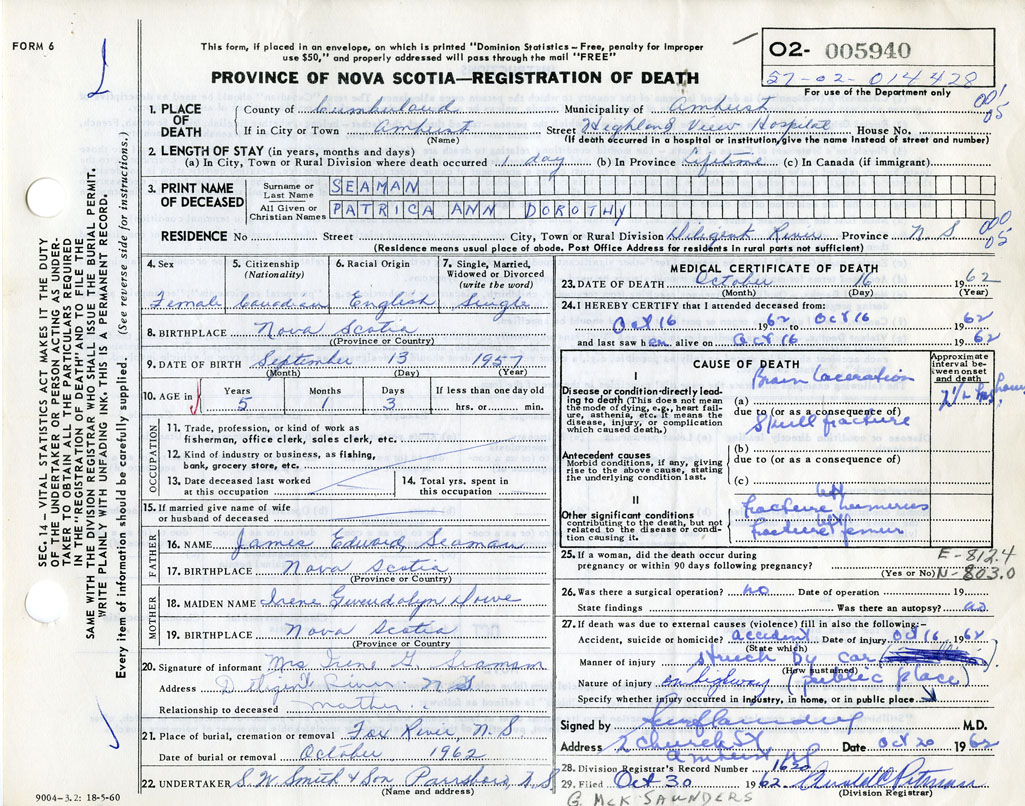 FORM 6
This form, if placed in an envelope, on which is printed "Dominion Statistics – Free, penalty for improper
use $50," and properly addressed will pass through the mail "FREE"
PROVINCE OF NOVA SCOTIA—REGISTRATION OF DEATH
O2- 005940
57-02-014428
For use of the Department only
SEC. 14 – VITAL STATISTICS ACT MAKES IT THE DUTY
OF THE UNDERTAKER OR PERSON ACTING AS UNDER-
TAKER TO OBTAIN ALL THE PARTICULARS REQUIRED
IN THE "REGISTRATION OF DEATH" AND TO FILE THE
SAME WITH THE DIVISION REGISTRAR WHO SHALL ISSUE THE BURIAL PERMIT.
WRITE PLAINLY WITH UNFADING INK. THIS IS A PERMANENT RECORD.
Every item of information should be carefully supplied. (See reverse side for instructions.)
1. PLACE OF DEATH
County of Cumberland Municipality of Amherst
001
05
If in City or Town Amherst Street Highland View Hospital House No.
(Name) (If death occurred in a hospital or institution, give name instead of street and number)
2. LENGTH OF STAY (in years, months and days)
(a) In City, Town or Rural Division where death occurred 1 day (b) In Province Lifetime (c) In Canada (if immigrant)
3. PRINT NAME OF DECEASED
Surname or Last Name SEAMAN
All Given or Christian Names PATRICA ANN DOROTHY
000
05
RESIDENCE No Street City, Town or Rural Division Diligent River Province N S
(Residence means usual place of abode. Post Office Address for residents in rural parts not sufficient)
4. Sex 5. Citizenship (Nationality) 6. Racial Origin 7. Single, Married, Widowed or Divorced (write the word)
Female Canadian English Single
8. BIRTHPLACE Nova Scotia
(Province or Country)
9. DATE OF BIRTH September 13 1957
(Month) (Day) (Year)
10. AGE in Years Months Days If less than one day old
5 1 3 hrs. or min.
OCCUPATION
11. Trade, profession, or kind of work as
fisherman, office clerk, sales clerk, etc.
12. Kind of industry or business, as fishing,
bank, grocery store, etc.
13. Date deceased last worked at this occupation
14. Total yrs. spent in this occupation
15. If married give name of wife
or husband of deceased
FATHER
16. NAME James Edward Seaman
17. BIRTHPLACE Nova Scotia
(Province or Country)
MOTHER
18. MAIDEN NAME Irene Gwendolyn Howe
19. BIRTHPLACE Nova Scotia
(Province or Country)
20. Signature of informant Mrs Irene G. Seaman
Address Diligent River N S
Relationship to deceased mother
21. Place of burial, cremation or removal Fox River, N. S
Date of burial or removal October 1962
22. UNDERTAKER S. W. Smith & Son Parrsboro, N. S
(Name and address)
9004-3.2: 18-5-60
MEDICAL CERTIFICATE OF DEATH
23. DATE OF DEATH October 16 1962
(Month) (Day) (Year)
24. I HEREBY CERTIFY that I attended deceased from:
Oct 16 1962 to Oct 16 1962
and last saw her alive on Oct 16 1962
CAUSE OF DEATH
Approximate interval between onset and death
I
Disease or condition directly leading to death (This does not mean
the mode of dying, e.g., heart failure, asthenia, etc. It means the
disease, injury, or complication which caused death.)
(a) Brain Laceration
due to (or as a consequence of)
Skull fracture
Antecedent causes
Morbid conditions, if any, giving
rise to the above cause, stating
the underlying condition last.
(b)
due to (or as a consequence of)
(c)
II
Other significant conditions
contributing to the death, but not
related to the disease or condition causing it.
left
fracture humerus
left
fracture femur
25. If a woman, did the death occur during
pregnancy or within 90 days following pregnancy?
(Yes or No)
E-812.4
N-803.0
26. Was there a surgical operation? no Date of operation 19
State findings Was there an autopsy? no
27. If death was due to external causes (violence) fill in also the following:–
Accident, suicide or homicide? accident Date of injury Oct 16 1962
(State which)
Manner of injury struck by car
(How sustained)
Nature of injury on highway (public place)
Specify whether injury occurred in industry, in home, or in public place
Signed by M.D.
Address 2 Church St Date Oct 20 1962
Amherst NS
28. Division Registrar's Record Number
29. Filed Oct 30 1962
(Division Registrar)
G. McK SAUNDERS